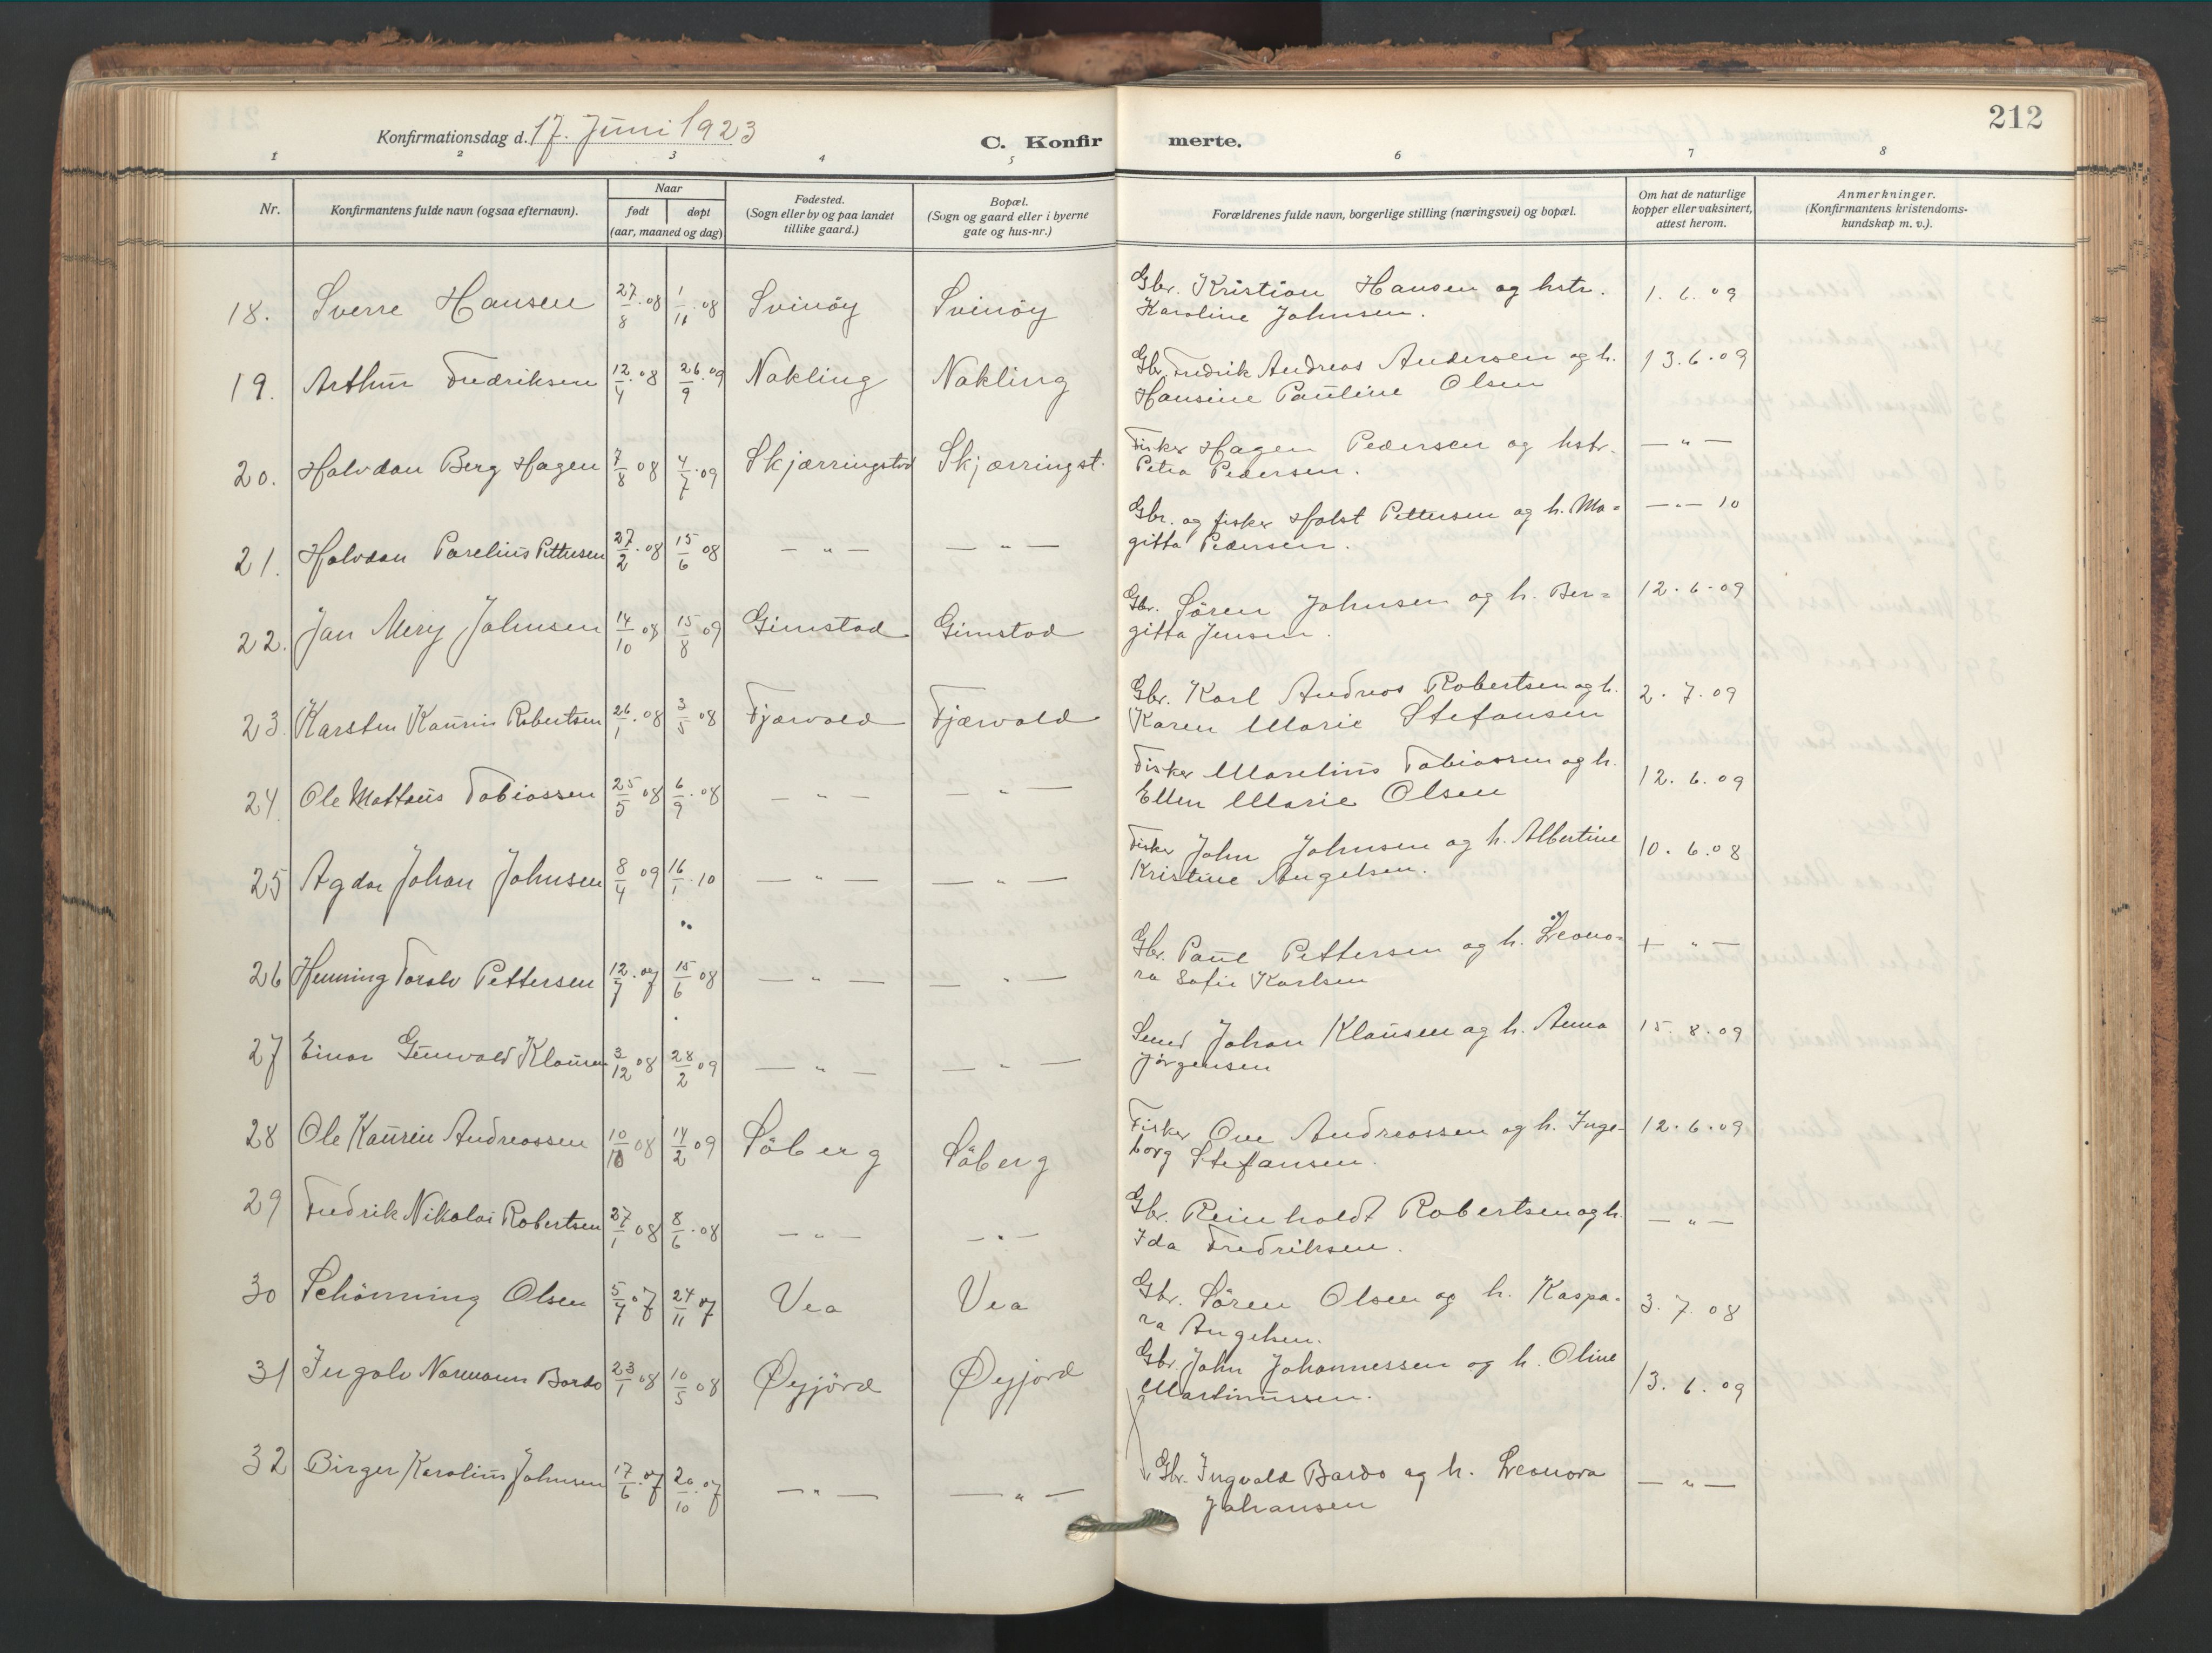 212
Konfirmationsdag d. 17. Juni 1923
C. Konfir merte.
1 2 3 4 5 6 7 8
Nr.
Konfirmantens fulde navn (ogsaa efternavn).
Naar
født døpt
(aar, maaned og dag)
Fødested.
(Sogn eller by og paa landet
tillike gaard.)
Bopæl.
(Sogn og gaard eller i byerne
gate og hus-nr.)
Forældrenes fulde navn, borgerlige stilling (næringsvei) og bopæl.
Om hat de naturlige
kopper eller vaksinert,
attest herom.
Anmerkninger.
(Konfirmantens kristendoms-
kundskap m. v.).
18. Sverre Hansen 27/8 08 1/11 08 Svinöy Svinöy Gbr. Kristian Hansen og hstr. 1. 6. 09
Karoline Johnsen.
19. Arthur Fredriksen 12/4 08 26/9 09 Nakling Nakling Gbr. Fredrik Andreas Andersen og h. 13. 6. 09
Hansine Pauline Olsen
20. Halvdan Berg Hagen 7/8 08 4/7 09 Skjærringstad Skjærringst. Fisker Hagen Pedersen og hstr. — " —
Petra Pedersen.
21. Halvdan Parelius Pettersen 27/2 08 15/6 08 — " — — " — Gbr. og fisker Holst Pettersen og h. Ma= — " — 10
gitta Pedersen.
22. Jan Meny Johnsen 14/10 08 15/8 09 Gimstad Gimstad Gbr. Sören Johnsen og h. Ber= 12. 6. 09
gitta Jensen.
23. Karsten Kaurin Robertsen 26/1 08 3/5 08 Fjærvold Fjærvold Gbr. Karl Andreas Robertsen og h. 2. 7. 09
Karen Marie Stefansen
24. Ole Mattæus Tobiassen 25/5 08 6/9 08 — " — — " — Fisker Marelius Tobiassen og h. 12. 6. 09
Ellen Marie Olsen
25 Agdar Johan Johnsen 8/4 09 16/1 10 — " — — " — Fisker John Johnsen og h. Albertine 10. 6. 08
Kristine Angelsen.
26 Henning Torolv Pettersen 12/7 07 15/6 08 — " — — " — Gbr. Paul Pettersen og h. Leono= — " —
ra Sofie Karlsen
27 Einar Gunvald Klausen 3/12 08 28/2 09 — " — — " — Johan Klausen og h. Anna 15. 8. 09
Jörgensen
28 Ole Kaurin Andreassen 10/10 08 14/2 09 Söberg Söberg Fisker Ove Andreassen og h. Inge- 12. 6. 09
borg Stefansen.
29 Fredrik Nikolai Robertsen 27/1 08 8/6 08 — " — — " — Gbr. Reinholdt Robertsen og h. — " —
Ida Fredriksen.
30 Schönning Olsen 5/7 07 24/11 07 Vea Vea Gbr. Sören Olsen og h. Kaspa- 3. 7. 08
ra Angelsen.
31 Ingolv Normann Bardo 23/1 08 10/5 08 Øyjörd Øyjord Gbr. John Johannessen og h. Oline 13. 6. 09
Martinussen.
32 Birger Karolius Johnsen 17/6 07 20/10 07 — " — — " — Gbr. Ingvald Bardo og h. Leonora — " —
Johansen